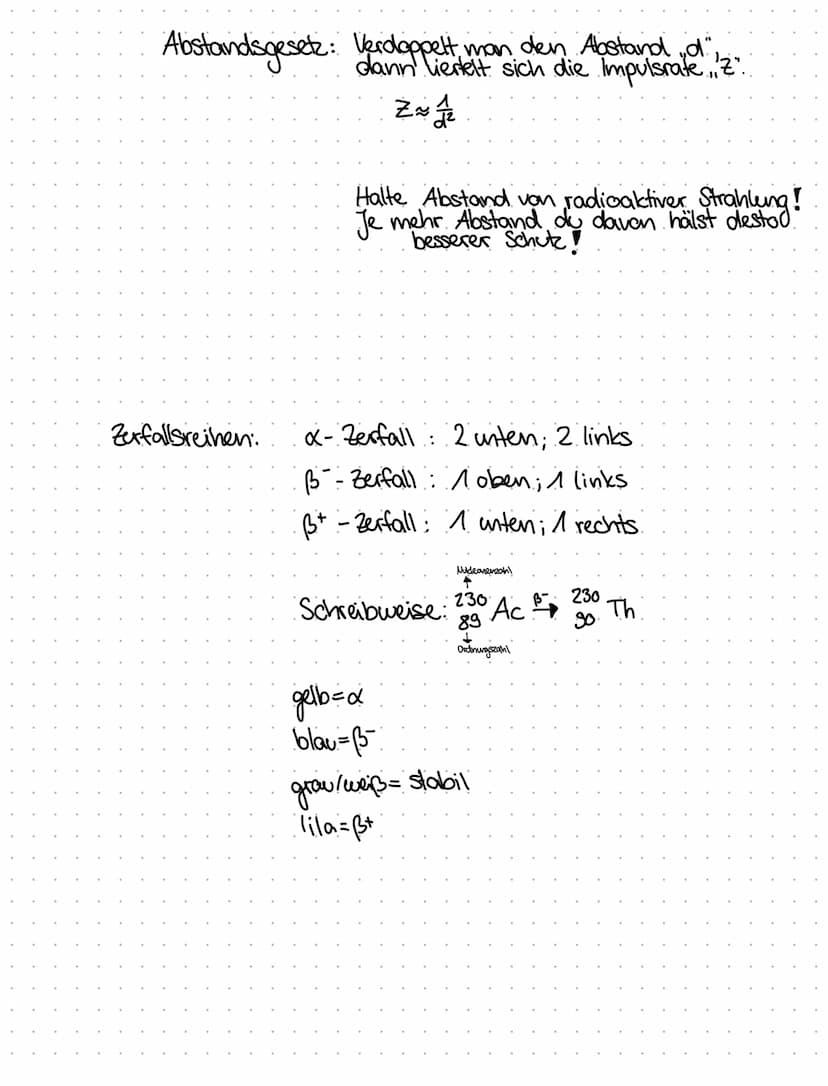 Abstandsgesetz: Verdoppelt man den Abstand „d",
dann viertelt sich die Impulsrate „Z".
Z ≈ 1/d²
Halte Abstand von radioaktiver Strahlung!
Je mehr Abstand du davon hälst desto
besserer Schutz!
Zerfallsreihen: α-Zerfall: 2 unten; 2 links
β⁻-Zerfall: 1 oben; 1 links
β⁺-Zerfall: 1 unten; 1 rechts
Nukleonenzahl
↑
Schreibweise: ²³⁰₈₉ Ac β⁻→ ²³⁰₉₀ Th
↓
Ordnungszahl
gelb=α
blau=β⁻
grau/weiß= stabil
lila=β+